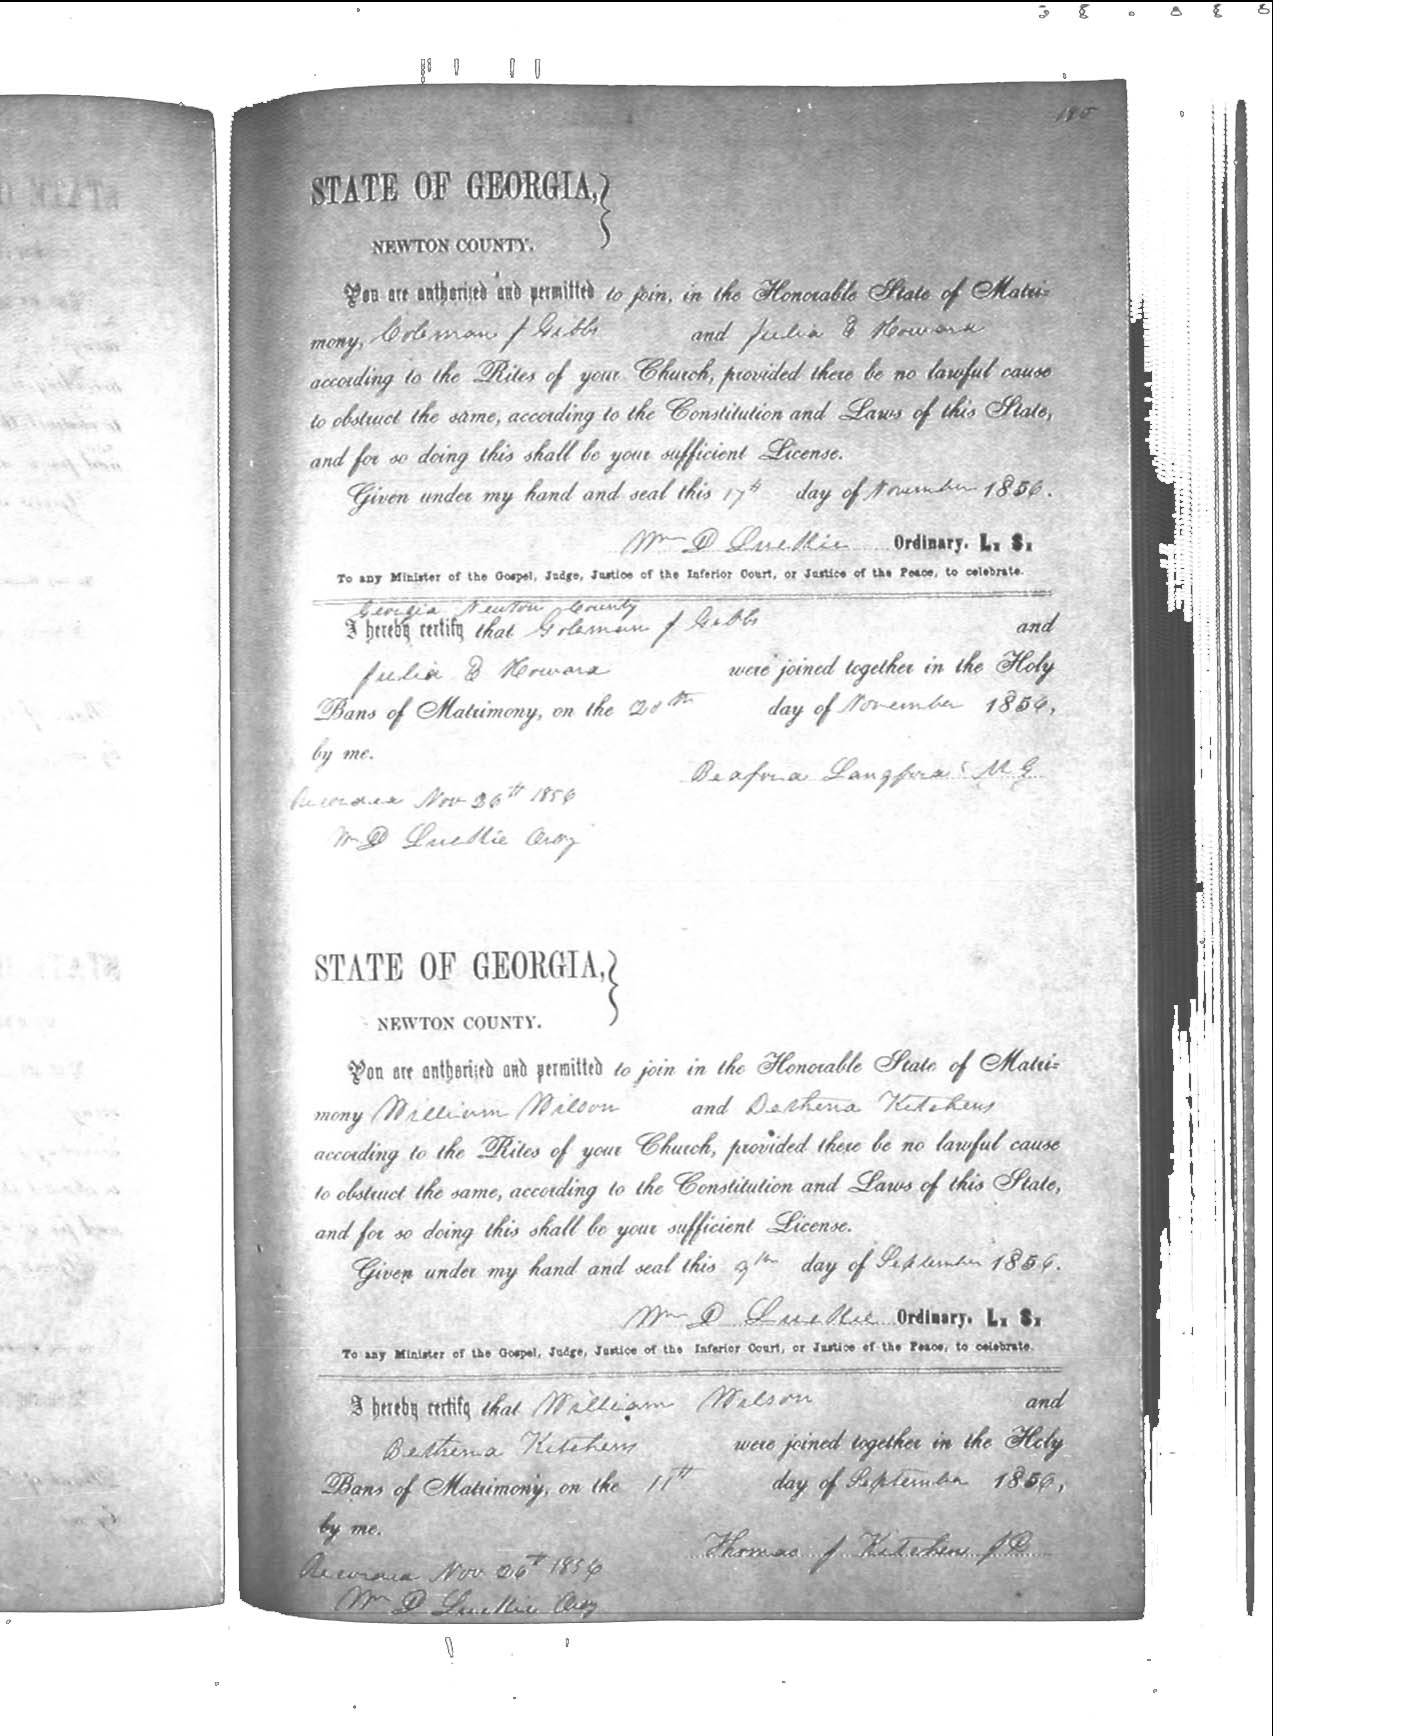 STATE OF GEORGIA,
NEWTON COUNTY.
You are authorized and permitted to join, in the Honorable State of Matri=
mony, Coleman J Gibbs and Julia E Howard
according to the Rites of your Church, provided there be no lawful cause
to obstruct the same, according to the Constitution and Laws of this State,
and for so doing this shall be your sufficient License.
Given under my hand and seal this 17th day of November 1856.
Wm D Luckie Ordinary. L. S.
To any Minister of the Gospel, Judge, Justice of the Inferior Court, or Justice of the Peace, to celebrate.
Georgia Newton County
I hereby certify that Coleman J Gibbs and
Julia E Howard were joined together in the Holy
Bans of Matrimony, on the 20th day of November 1856,
by me.
Langford M G
Recorded Nov 26th 1856
Wm D Luckie Ordy
STATE OF GEORGIA,
NEWTON COUNTY.
You are authorized and permitted to join in the Honorable State of Matri=
mony William Wilson and Bethena Kitchens
according to the Rites of your Church, provided there be no lawful cause
to obstruct the same, according to the Constitution and Laws of this State,
and for so doing this shall be your sufficient License.
Given under my hand and seal this 9th day of September 1856.
Wm D Luckie Ordinary. L. S.
To any Minister of the Gospel, Judge, Justice of the Inferior Court, or Justice of the Peace, to celebrate.
I hereby certify that William Wilson and
Bethena Kitchens were joined together in the Holy
Bans of Matrimony, on the 11th day of September 1856,
by me.
Thomas J Kitchens J P
Recorded Nov 26th 1856
Wm D Luckie Ordy